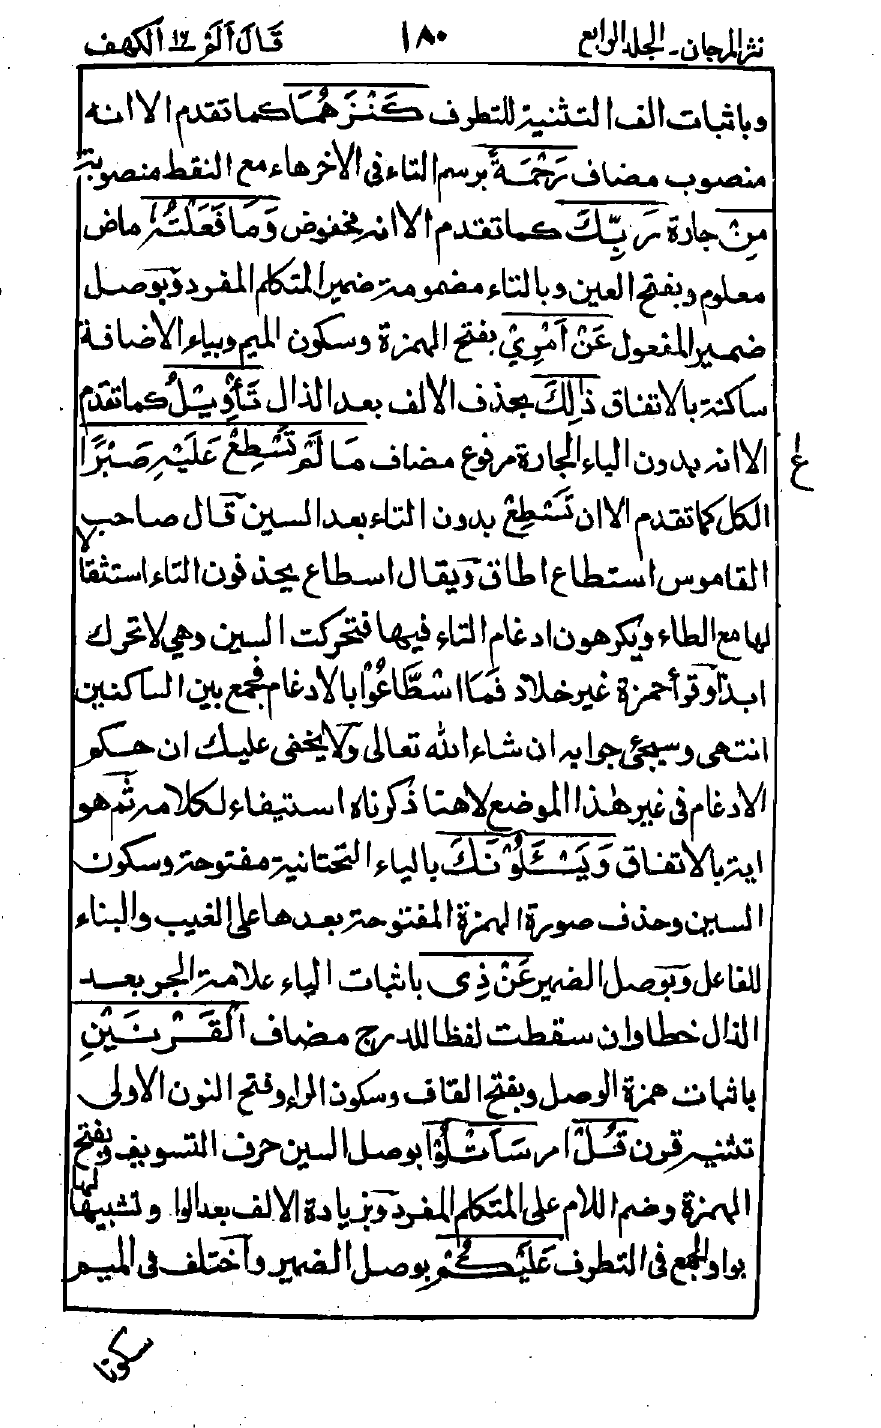 نثر المرجان ـ الجلد الرابع ١٨٠ قال ألم ١٦ الكهف
وباثبات الف التثنية للتطرف كَنْزَهُمَا كما تقدم الا انه
منصوب مضاف رَحْمَةً برسم التاء فى الآخر هاء مع النقط منصوبة
مِنْ جارة رَبِّكَ كما تقدم الا انه مخفوض وَمَا فَعَلْتُهُ ماض
معلوم وبفتح العين وبالتاء مضمومة ضمير المتكلم المفرد وبوصل
ضمير المفعول عَنْ أَمْرِيْ بفتح الهمزة وسكون الميم وبياء الاضافة
ساكنة بالاتفاق ذٰلِكَ بحذف الالف بعد الذال تَأْوِيْلُ كما تقدم
الا انه بدون الباء الجارة مرفوع مضاف مَا لَمْ تَسْطِعْ عَلَيْهِ صَبْرًا
ع
الكل كما تقدم الا ان تَسْطِعْ بدون التاء بعد السين قال صاحب
القاموس استطاع اطاق ويقال اسطاع يحذفون التاء استثقالا
لها مع الطاء ويكرهون ادغام التاء فيها فتحركت السين وهي لا تحرك
ابدا وقرأ حمزة غير خلاد فَمَا اسْطَّاعُوْا بالادغام فجمع بين الساكنين
انتهى وسيجئ جوابه ان شاء الله تعالى ولا يخفى عليك ان حكم
الادغام فى غير هذا الموضع لا هنا ذكرناه استيفاء لكلامه ثم هو
اية بالاتفاق وَيَسْـَٔلُوْنَكَ بالياء التحتانية مفتوحة وسكون
السين وحذف صورة الهمزة المفتوحة بعدها على الغيب والبناء
للفاعل وبوصل الضمير عَنْ ذِى باثبات الياء علامة الجر بعد
الذال خطا وان سقطت لفظا للدرج مضاف الْقَرْنَيْنِ
باثبات همزة الوصل وبفتح القاف وسكون الراء وفتح النون الاولى
تثنية قرن قُلْ امر سَأَتْلُوْا بوصل السين حرف التسويف وبفتح
الهمزة وضم اللام على المتكلم المفرد وبزيادة الالف بعد الواو تشبيها لها
بواو الجمع فى التطرف عَلَيْكُمْ بوصل الضمير واختلف فى الميم
سكونا